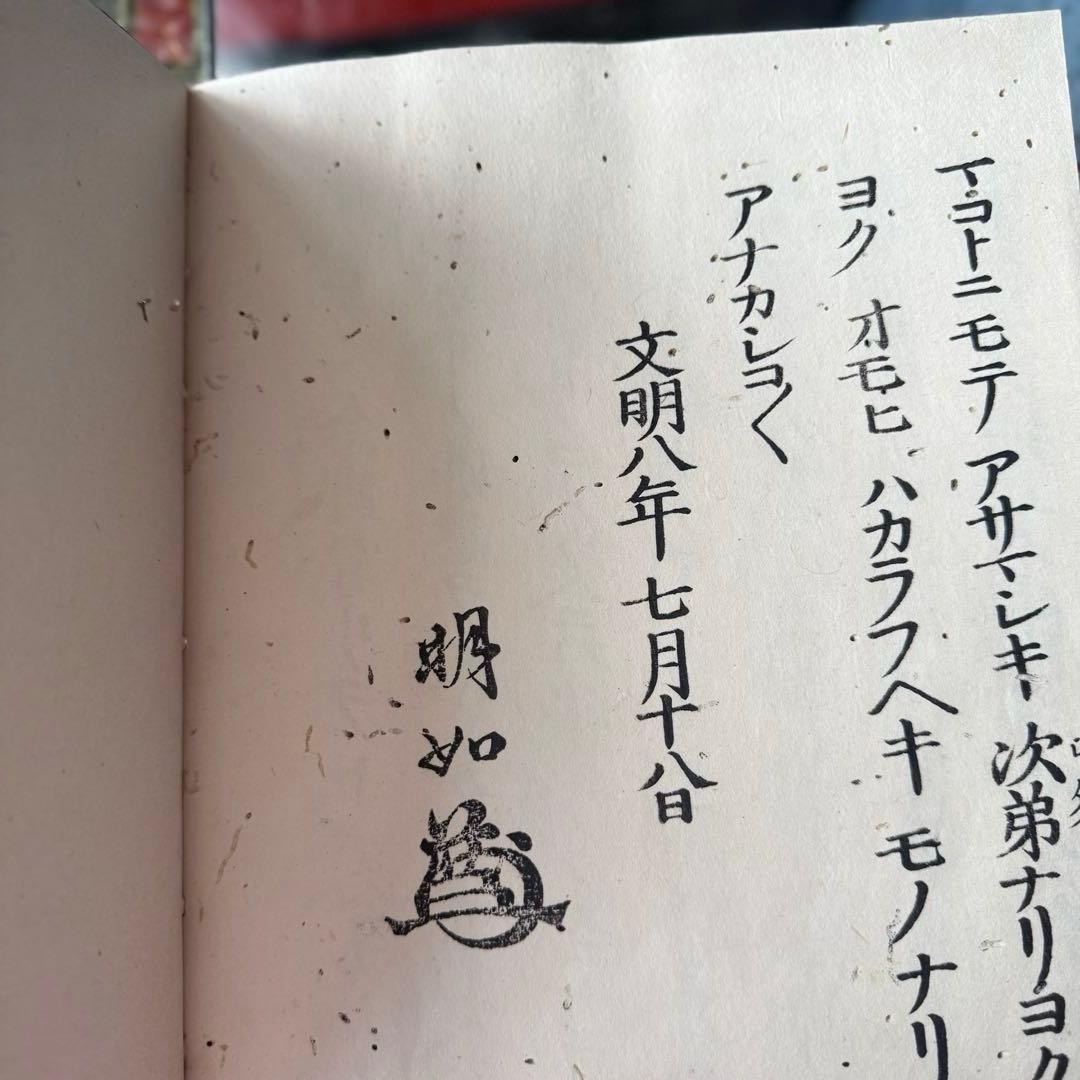 マコトニモテ アサマシキ 次弟ナリ ヨク
ヨク オモヒ ハカラフヘキ モノナリ
アナカシコ〱
文明八年 七月十八日
明如